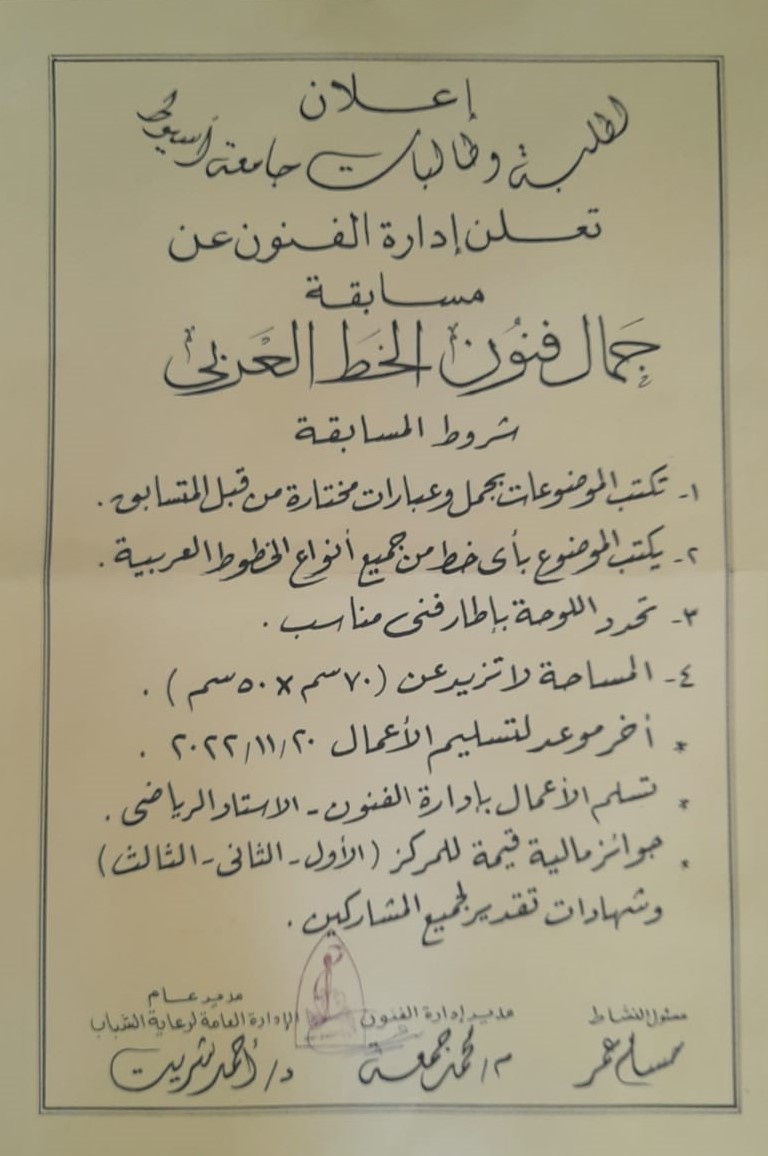 إعلان
لطلبة وطالبات جامعة أسيوط
تعلن إدارة الفنون عن
مسابقة
جمال فنون الخط العربي
شروط المسابقة
١- تكتب الموضوعات بجمل وعبارات مختارة من قبل المتسابق.
٢- يكتب الموضوع بأى خط من جميع أنواع الخطوط العربية.
٣- تحدد اللوحة بإطار فنى مناسب.
٤- المساحة لا تزيد عن (٧٠سم × ٥٠سم).
* أخر موعد لتسليم الأعمال ٢٠/١١/٢٠٢٢.
* تسلم الأعمال بإدارة الفنون - الاستاد الرياضى.
* جوائز مالية قيمة للمركز (الأول - الثانى - الثالث)
وشهادات تقدير لجميع المشاركين.
مسئول النشاط
مدير إدارة الفنون
مدير عام
الإدارة العامة لرعاية الشباب
عمر
م/ محمد جمعة
د/ أحمد شريت